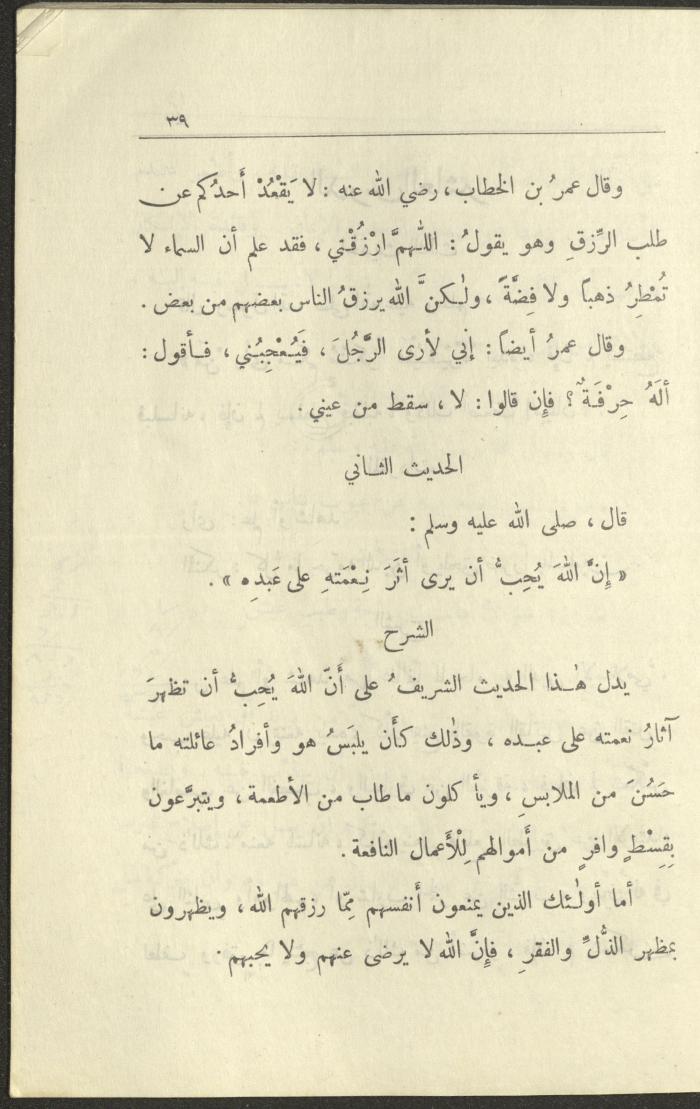 ٣٩
وقال عمرُ بن الخطاب، رضي الله عنه: لا يَقْعُدْ أَحدُكم عن
طلب الرِّزقِ وهو يقولُ: اللّٰهمَّ ارْزُقْني، فقد علم أن السماء لا
تُمْطِرُ ذهباً ولا فِضَّةً، ولٰكنَّ الله يرزقُ الناس بعضهم من بعض.
وقال عمرُ أيضاً: إني لأرى الرَّجُلَ، فَيُعْجِبُني، فأقول:
أَلَهُ حِرْفَةٌ؟ فإِن قالوا: لا، سقط من عيني.
الحديث الثاني
قال، صلى الله عليه وسلم:
« إِنَّ اللهَ يُحِبُّ أن يرى أَثَرَ نِعْمَتهِ على عَبدِه ».
الشرح
يدل هٰذا الحديث الشريفُ على أَنّ اللهَ يُحِبُّ أن تظهرَ
آثارُ نعمته على عبده، وذٰلك كأَن يلبَسُ هو وأفرادُ عائلته ما
حَسُنَ من الملابسِ، ويأكلون ما طاب من الأطعمة، ويتبرَّعون
بِقِسْطٍ وافرٍ من أَموالهم لِلْأَعمال النافعة.
أما أولٰئك الذين يمنعون أَنفسهم مِمّا رزقهم الله، ويظهرون
بمظهر الذُّلِّ والفقرِ، فإِنَّ الله لا يرضى عنهم ولا يحبهم.